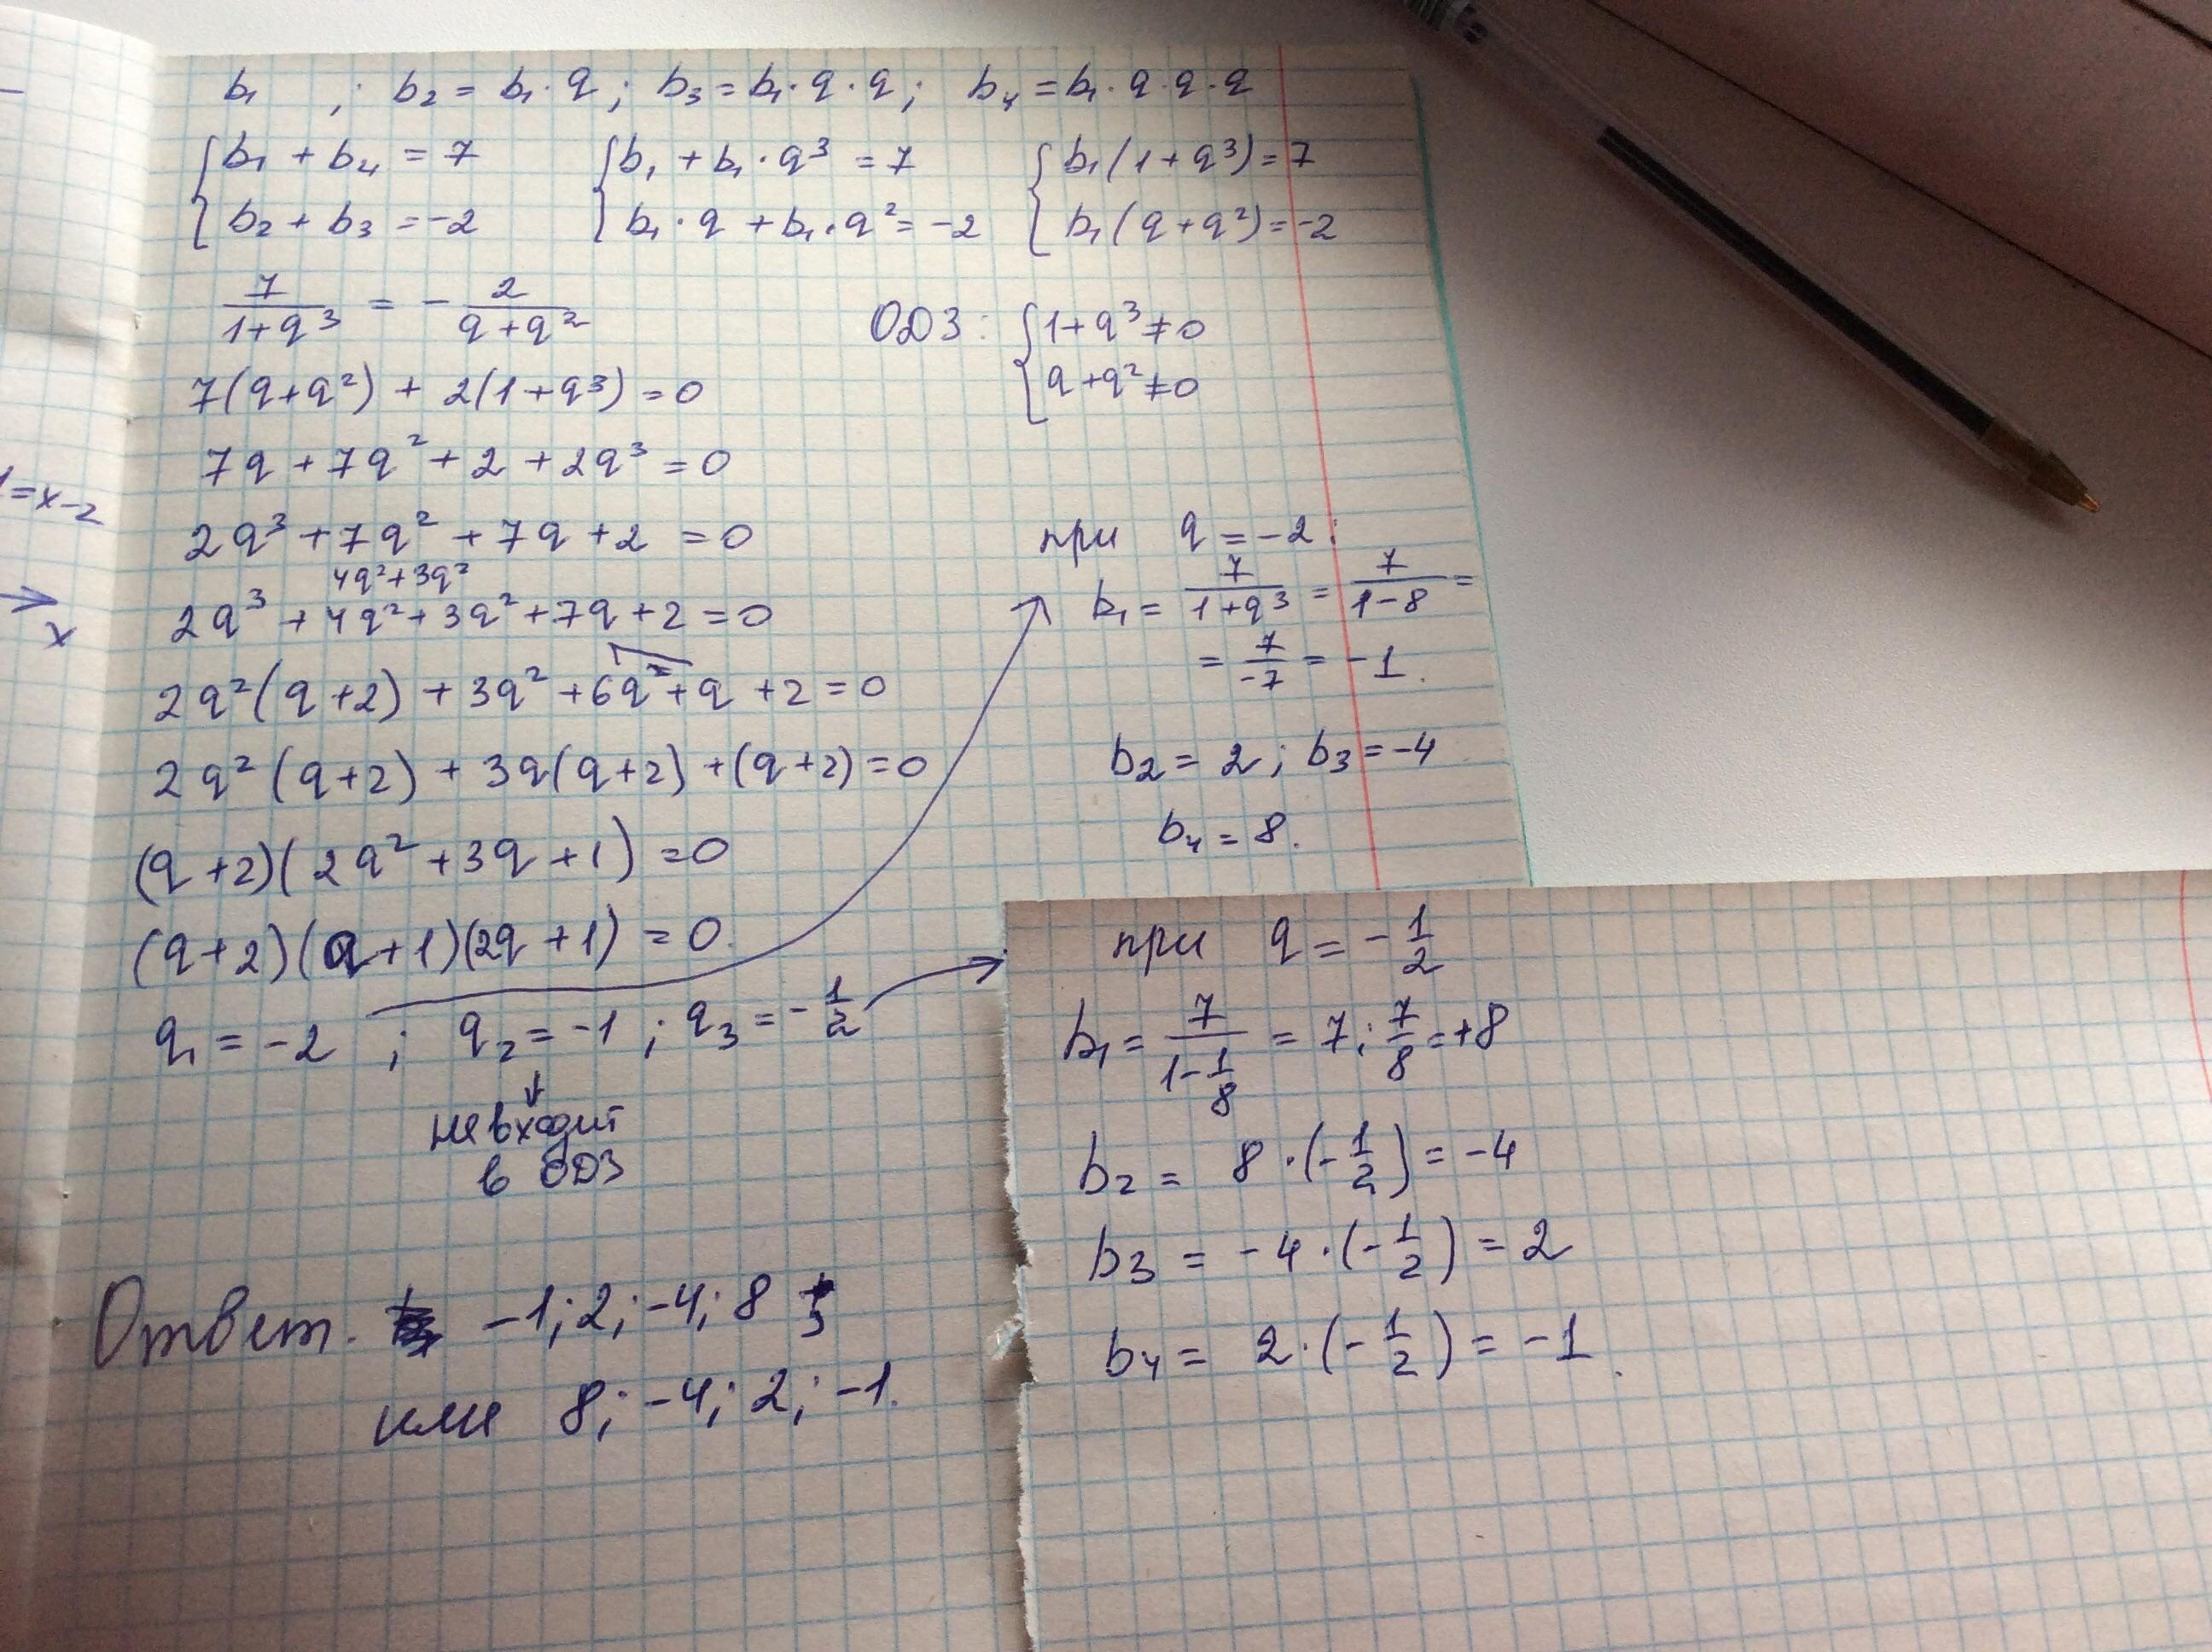 b₁ ; b₂ = b₁·q ; b₃ = b₁·q·q ; b₄ = b₁·q·q·q
{ b₁ + b₄ = 7 { b₁ + b₁·q³ = 7 { b₁(1+q³) = 7
{ b₂ + b₃ = -2 { b₁·q + b₁·q² = -2 { b₁(q+q²) = -2
7/(1+q³) = - 2/(q+q²)
ОДЗ: { 1+q³ ≠ 0
{ q+q² ≠ 0
7(q+q²) + 2(1+q³) = 0
7q + 7q² + 2 + 2q³ = 0
2q³ + 7q² + 7q + 2 = 0
4q²+3q²
2q³ + 4q² + 3q² + 7q + 2 = 0
2q²(q+2) + 3q² + 6q + q + 2 = 0
2q²(q+2) + 3q(q+2) + (q+2) = 0
(q+2)(2q² + 3q + 1) = 0
(q+2)(q+1)(2q+1) = 0.
q₁ = -2 ; q₂ = -1 ; q₃ = -1/2
не входит
в ОДЗ
при q = -2:
b₁ = 7/(1+q³) = 7/(1-8) =
= 7/-7 = -1.
b₂ = 2; b₃ = -4
b₄ = 8.
при q = -1/2
b₁ = 7/(1-1/8) = 7 : 7/8 = +8
b₂ = 8·(-1/2) = -4
b₃ = -4·(-1/2) = 2
b₄ = 2·(-1/2) = -1.
Ответ. -1; 2; -4; 8;
или 8; -4; 2; -1.
=x-2
x